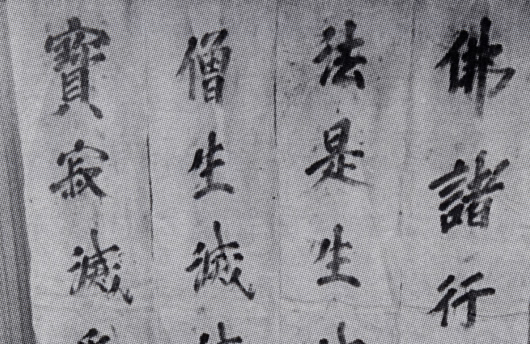 佛諸行
法是生
僧生滅
寶寂滅